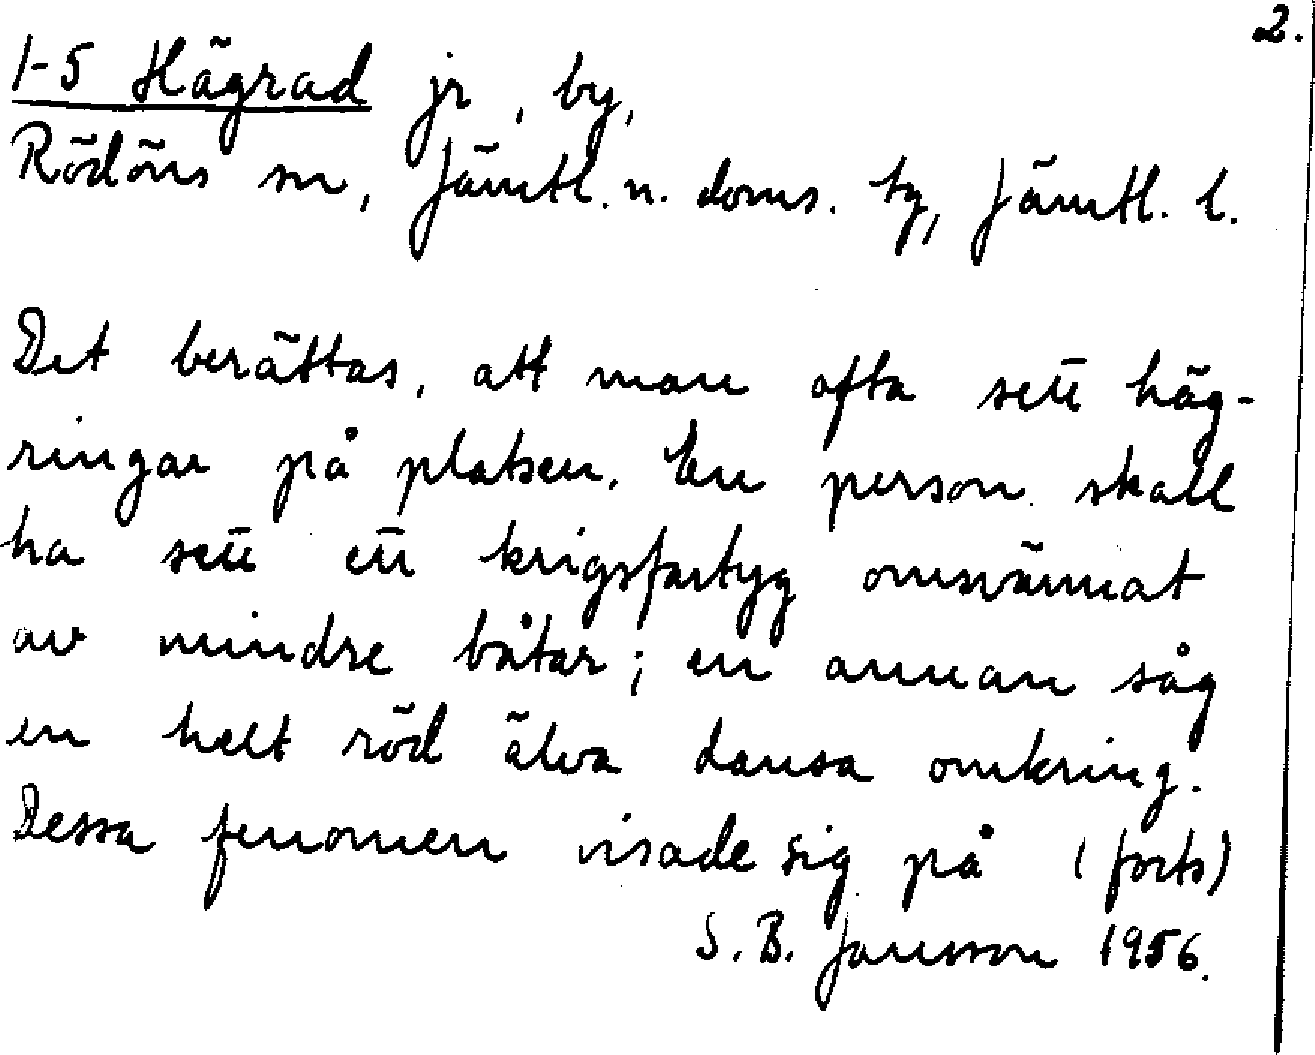 2.
1-5 Hägrad jr, by,
Rödöns sn, Jämtl. n. doms. tg, Jämtl. l.
Det berättas, att man ofta sett häg-
ringar på platsen. En person skall
ha sett ett krigsfartyg omsvärmat
av mindre båtar; en annan såg
en helt röd älva dansa omkring.
Dessa fenomen visade sig på (forts)
S. B. Jansson 1956.